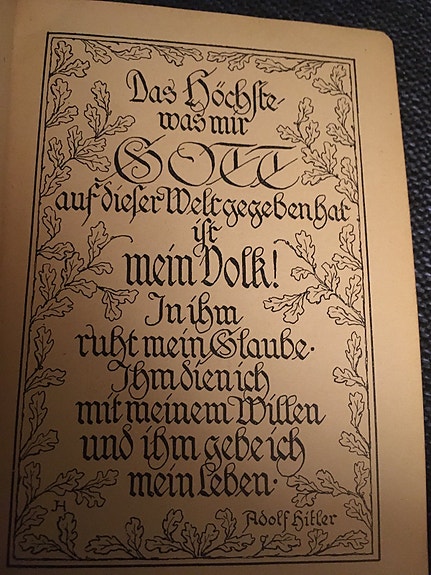 Das Höchste
was mir
GOTT
auf dieser Welt gegeben hat
ist
mein Volk!
In ihm
ruht mein Glaube.
Ihm dien ich
mit meinem Willen
und ihm gebe ich
mein Leben.
Adolf Hitler